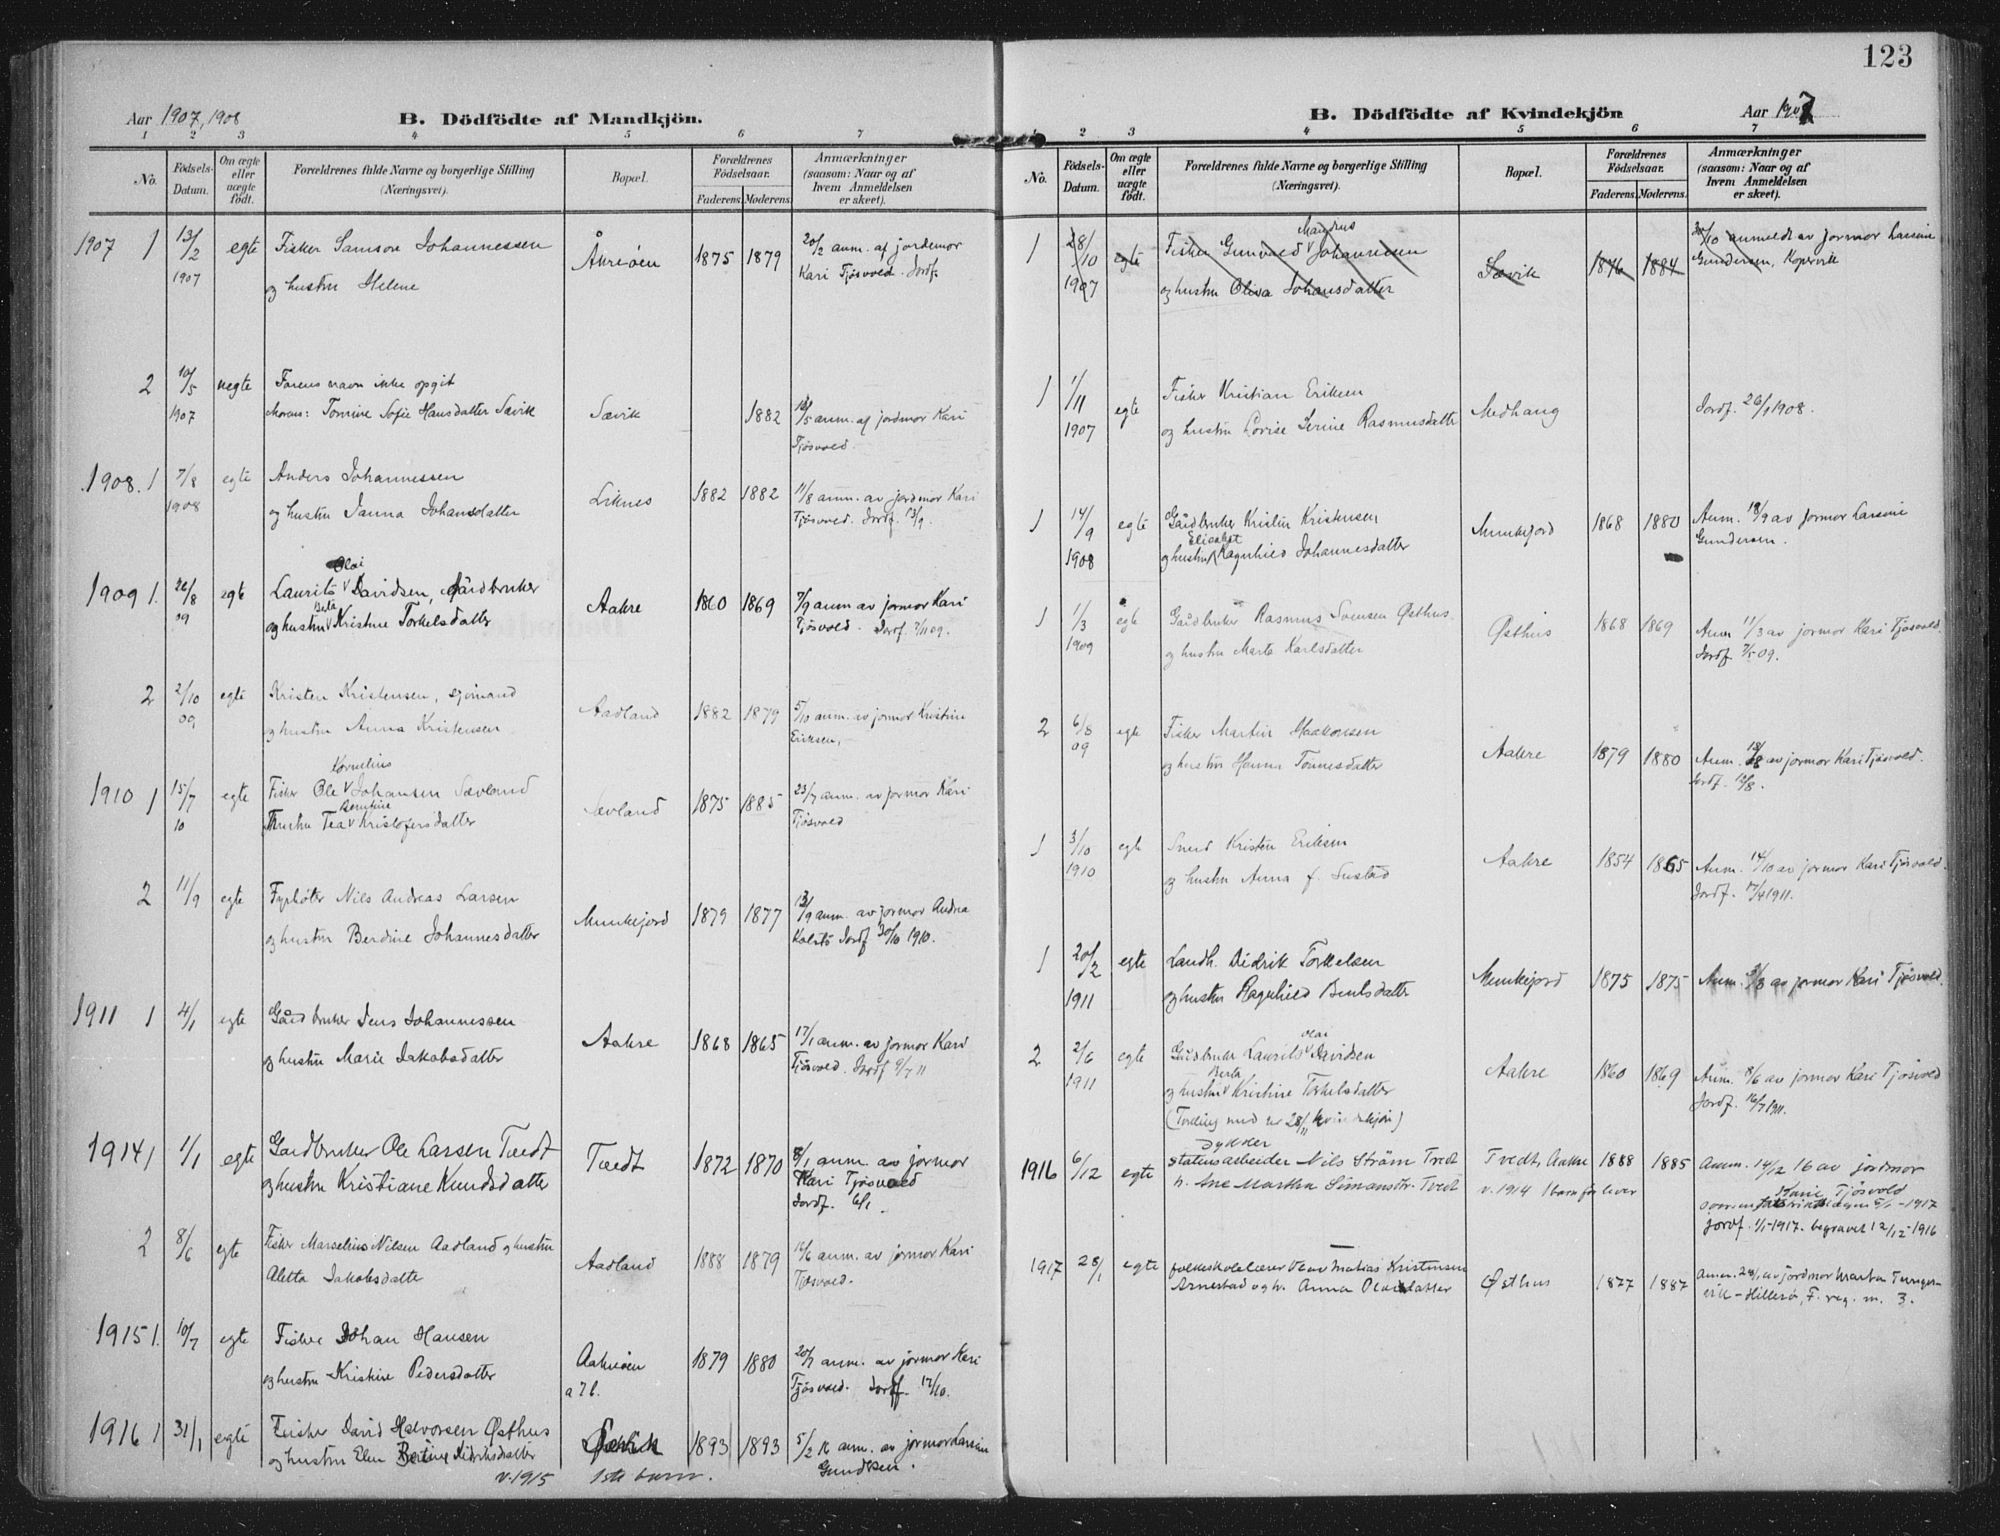 123
Aar 1907, 1908
B. Dödfödte af Mandkjön.
1 2 3 4 5 6 7
No.
Födsels-Datum.
Om ægte eller uægte födt.
Forældrenes fulde Navne og borgerlige Stilling (Næringsvei).
Bopæl.
Forældrenes Födselsaar.
Faderens. Moderens.
Anmærkninger (saasom: Naar og af hvem Anmeldelsen er skeet).
1907 1 13/2 egte Fisker Samson Johannessen Åkreöen 1875 1879 20/2 anm. af jordemor
1907 og hustru Helene Kari Tjøsvold. Jordf.
2 10/5 uegte Farens navn ikke opgit
1907 Moren: Tomine Sofie Hansdatter Sævik Sævik 1882 anm. af jordmor Kari
Tjøsvold.
1908. 1 7/8 egte Anders Johannessen Liknes 1882 1882 11/8 anm. av jordmor Kari
1908 og hustru Janna Johansdatter Tjøsvold. Jordf. 13/9.
Olai
1909 1. 26/8 egte Laurits Davidsen, Gårdbruker Aakre 1860 1869 7/9 anm av jormor Kari
Berta
09 og hustru Kristine Torkelsdatter Tjøsvold. Jordf. 7/11 09.
2 2/10 egte Kristen Kristensen, sjömand Aadland 1882 1879 5/10 anm. av jormor Kristine
09 og hustru Anna Kristensen Eriksen.
Kornelius
1910 1 15/7 egte Fisker Ole Johansen Sævland Sævland 1875 1885 23/7 anm. av jormor Kari
10 hustru Tea Kristofersdatter Tjøsvold
2 11/9 egte Fyrbøter Nils Andreas Larsen Munkejord 1879 1877 13/9 anm. av jormor Andrea
og hustru Berdine Johannesdatter Kolstö Jordf 30/10 1910.
1911 1 4/1 egte Gårdbruker Jens Johannessen Aakre 1868 1865 17/1 anm. av jormor Kari
og hustru Marie Jakobsdatter Tjøsvold. Jordf 9/7 11
1914 1 1/1 egte Gardbruker Ole Larsen Tvedt Tvedt 1872 1870 8/1 anm. av jormor
og hustru Kristiane Knudsdatter Kari Tjøsvold
Jordf. 6/1.
2 8/6 egte Fisker Marselius Nilsen Aadland og hustru Aadland 1888 1879 16/6 anm. av jormor Kari
Aletta Jakobsdatte Tjøsvold.
1915 1. 10/7 egte Fisker Johan Hansen Aakreöen 1879 1880 20/7 anm. av jormor Kari
og hustru Kristine Pedersdatter a 7 b. Tjøsvold. Jordf. 17/10.
1916 1 31/1 egte Fisker David Halvorsen Østhus 1893 1893 5/2 16 anm. av jormor Larsine
og hustru Elen Bertine Didriksdatter Gundersen.
v. 1915 1ste barn.
B. Dödfödte af Kvindekjön
Aar 1907
1 2 3 4 5 6 7
No.
Födsels-Datum.
Om ægte eller uægte födt.
Forældrenes fulde Navne og borgerlige Stilling (Næringsvei).
Bopæl.
Forældrenes Födselsaar.
Faderens. Moderens.
Anmærkninger (saasom: Naar og af hvem Anmeldelsen er skeet).
1 28/10 egte Fisker Gunvald Johannesen Sævik 1876 1884 30/10 anmeldt av jormor Larsine
1907 og hustru Oliva Johansdatter Gundersen, Kopervik
1 1/11 egte Fisker Kristian Eriksen Medhaug Jordf. 26/1 1908.
1907 og hustru Lovise Serine Rasmusdatter
1 14/9 egte Gårdbruker Kristen Kristensen Munkejord 1868 1880 Anm. 18/9 av jormor Larsine
Elisabet
1908 og hustru Ragnhild Johannesdatter Gundersen.
1 1/3 egte Gårdbruker Rasmus Svensen Østhus Østhus 1868 1869 Anm 11/3 av jormor Kari Tjøsvold.
1909 og hustru Marta Karlsdatter Jordf. 7/5 09.
2 6/8 egte Fisker Martin Haakonsen Aakre 1879 1880 Anm. av jormor Kari Tjøsvold.
09 og hustru Hanna Tönnesdatter Jordf. 12/8.
1 3/10 egte Smed Kristen Eriksen Aakre 1854 1865 Anm. 14/10 av jormor Kari Tjøsvold.
1910 og hustru Anna f. Sustad Jordf. 17/4 1911.
1 20/2 egte Landh. Didrik Torkelsen Munkejord 1875 1875 Anm. av jormor Kari Tjøsvold.
1911 og hustru Ragnhild Bentsdatter
Olai
2 2/6 egte Gårdbruker Laurits Davidsen Aakre 1860 1869 Anm. 8/6 av jormor Kari Tjøsvold
Berta
1911 og hustru Kristine Torkelsdatter Jordf. 16/7 1911.
(Tvilling med nr 28/11 kvindekjön)
Dykker
1916 6/12 egte statensarbeider Nils Ström Tvedt Tvedt, Aakre 1888 1885 Anm. 14/12 16 av jordmor
h. Ane Martha Simonsdtr. Tvedt v. 1914 1 barn før lever Kari Tjøsvold
Jordf. 1/1-1917. begravet 12/12-1916
1917 28/1 egte folkeskolelærer Olav Matias Kristensen Østhus 1877 1887 Anm. 29/1 av jordmor Marta Tunger-
Arnestad og h. Anna Olavsdatter vik-Hillesö, F. reg. m. 3.